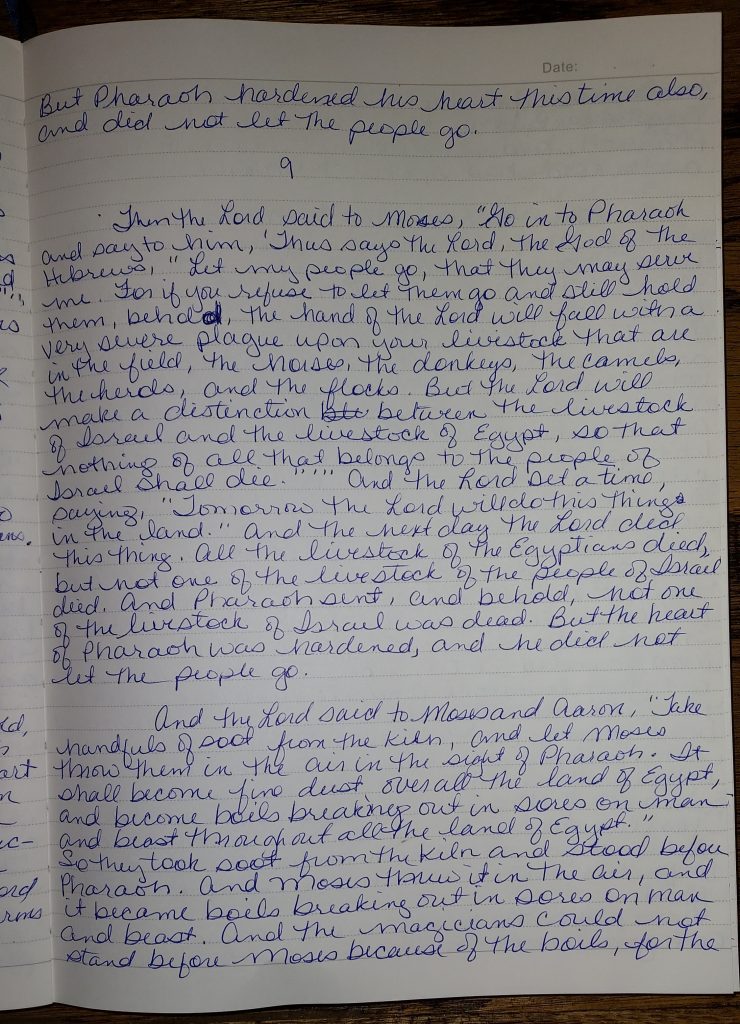 Date:
But Pharaoh hardened his heart this time also,
and did not let the people go.
9
Then the Lord said to Moses, "Go in to Pharaoh
and say to him, 'Thus says the Lord, the God of the
Hebrews, "Let my people go, that they may serve
me. For if you refuse to let them go and still hold
them, behold, the hand of the Lord will fall with a
very severe plague upon your livestock that are
in the field, the horses, the donkeys, the camels,
the herds, and the flocks. But the Lord will
make a distinction between the livestock
of Israel and the livestock of Egypt, so that
nothing of all that belongs to the people of
Israel shall die."'" And the Lord set a time,
saying, "Tomorrow the Lord will do this thing
in the land." And the next day the Lord did
this thing. All the livestock of the Egyptians died,
but not one of the livestock of the people of Israel
died. And Pharaoh sent, and behold, not one
of the livestock of Israel was dead. But the heart
of Pharaoh was hardened, and he did not
let the people go.
And the Lord said to Moses and Aaron, "Take
handfuls of soot from the kiln, and let Moses
throw them in the air in the sight of Pharaoh. It
shall become fine dust over all the land of Egypt,
and become boils breaking out in sores on man
and beast throughout all the land of Egypt."
So they took soot from the kiln and stood before
Pharaoh. And Moses threw it in the air, and
it became boils breaking out in sores on man
and beast. And the magicians could not
stand before Moses because of the boils, for the